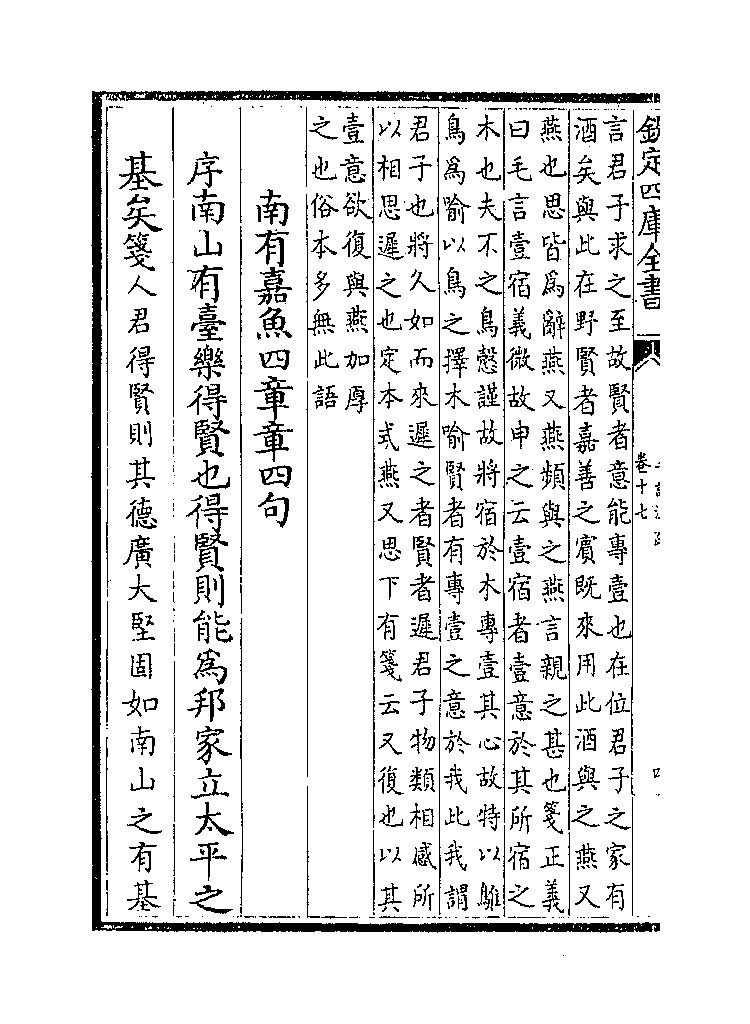 欽定四庫全書
卷十七
言君子求之至故賢者意能專壹也在位君子之家有
酒矣與此在野賢者嘉善之賓既來用此酒與之燕又
燕也思皆為辭燕又燕頻與之燕言親之甚也箋正義
曰毛言壹宿義微故申之云壹宿者壹意於其所宿之
木也夫不之鳥慤謹故將宿於木專壹其心故特以鵻
鳥為喻以鳥之擇木喻賢者有專壹之意於我此我謂
君子也將久如而來遲之者賢者遲君子物類相感所
以相思遲之也定本式燕又思下有箋云又復也以其
壹意欲復與燕加厚
之也俗本多無此語
南有嘉魚四章章四句
序南山有臺樂得賢也得賢則能為邦家立太平之
基矣箋人君得賢則其德廣大堅固如南山之有基